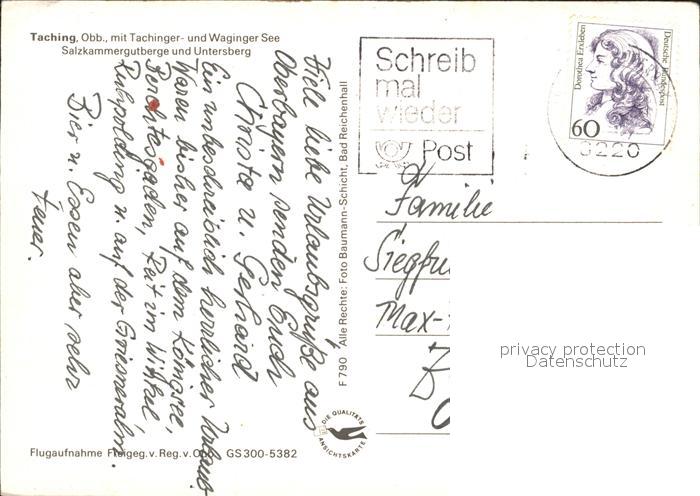 Taching, Obb., mit Tachinger- und Waginger See
Salzkammergutberge und Untersberg
Viele liebe Urlaubsgrüße aus
Oberbayern senden Euch
Christa u. Gerhard
Ein unbeschreiblich herrlicher Urlaub
Waren bisher auf dem Königsee,
Berchtesgaden, Reit im Winkel,
Ruhpolding u. auf der
Bier u. Essen aber sehr
teuer.
Flugaufnahme Freigeg. v. Reg. v. Obb. GS 300-5382
F 790 Alle Rechte: Foto Baumann-Schicht, Bad Reichenhall
DIE QUALITÄTS
ANSICHTSKARTE
Schreib
mal
wieder
Post
Dorothea Erxleben
Deutsche Bundespost
60
3220
Familie
Siegfri
Max-
privacy protection
Datenschutz